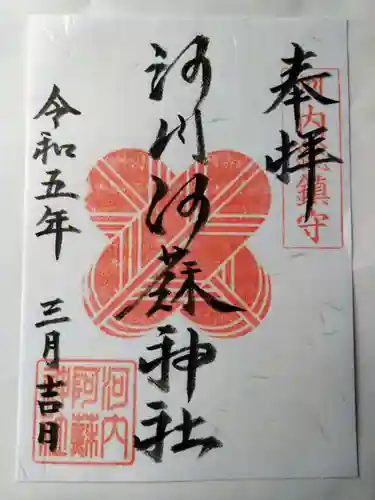 奉拝
河内 鎮守
河内阿蘇神社
令和五年 三月吉日
河内
阿蘇
神社